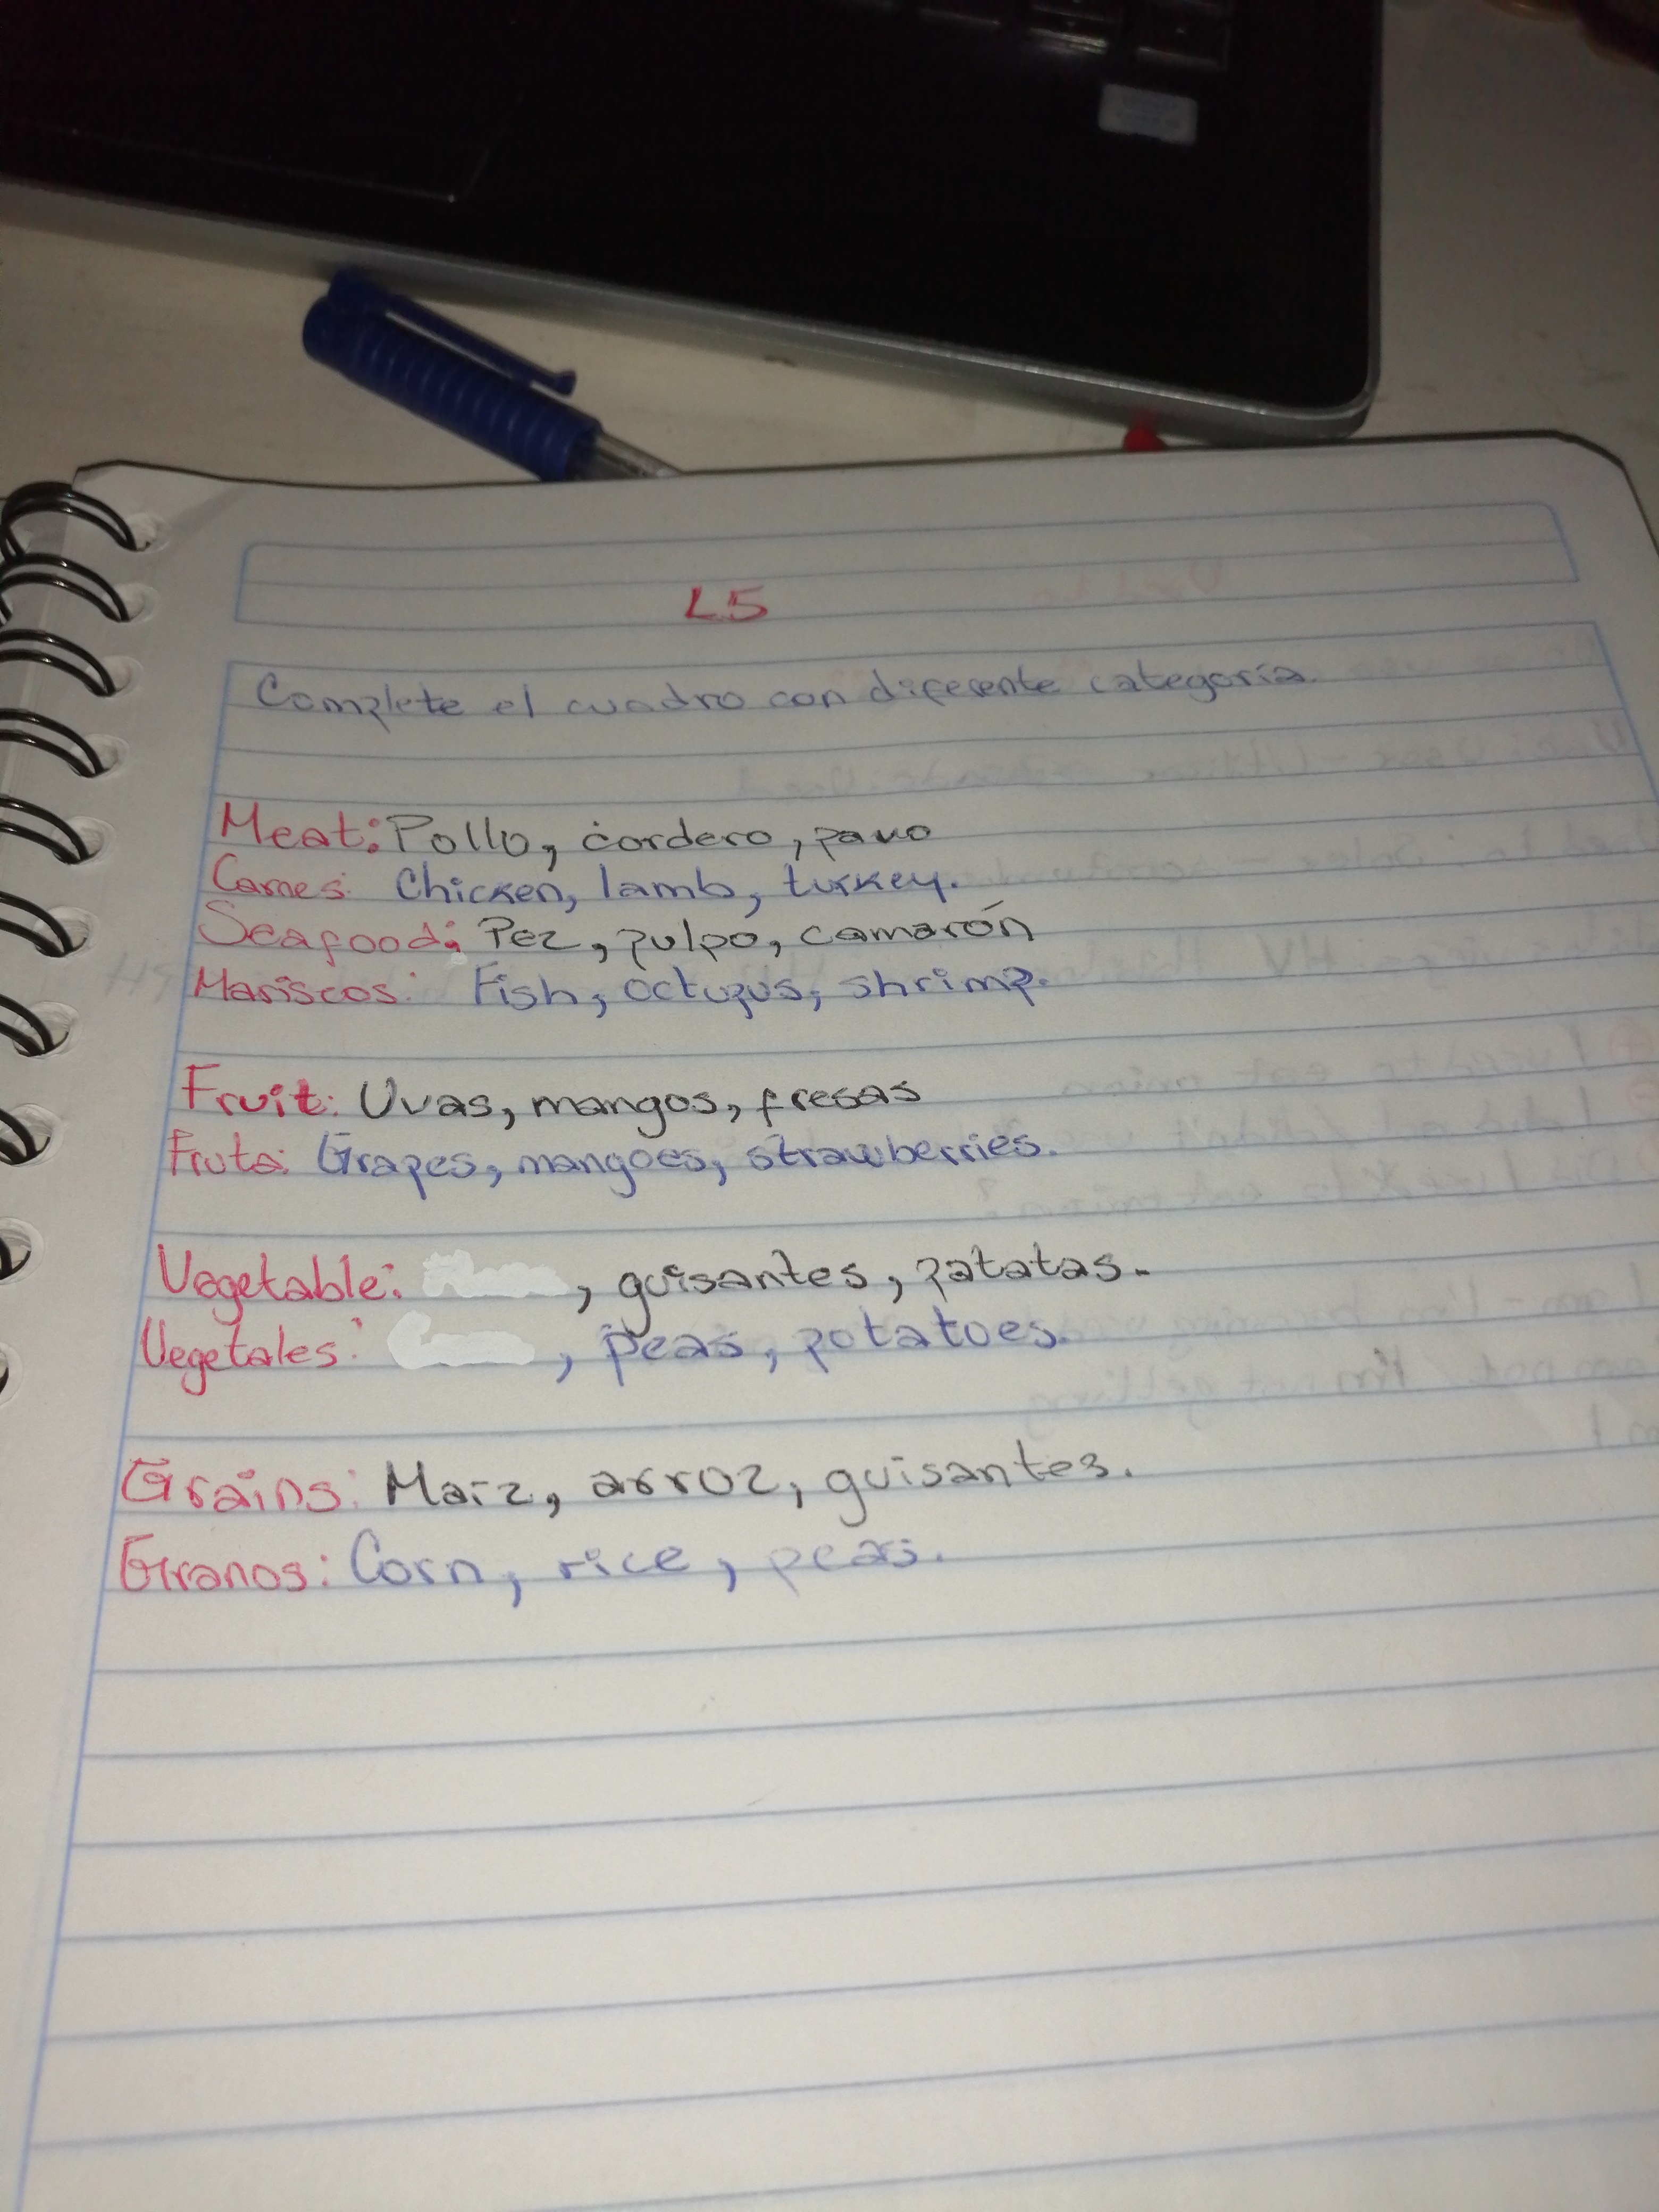 L5
Complete el cuadro con diferente categoría.
Meat: Pollo, cordero, pavo
Carnes: Chicken, lamb, turkey.
Seafood: Pez, pulpo, camarón
Mariscos: Fish, octupus, shrimp.
Fruit: Uvas, mangos, fresas
Fruta: Grapes, mangoes, strawberries.
Vegetable: , guisantes, patatas.
Vegetales: , peas, potatoes.
Grains: Maíz, arroz, guisantes.
Granos: Corn, rice, peas.